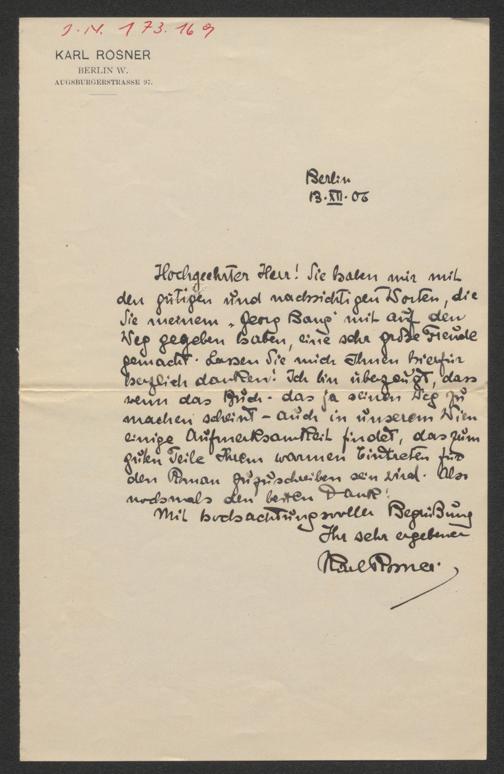 J.N. 173.169
KARL ROSNER
BERLIN W.
AUGSBURGERSTRASSE 97.
Berlin
13.XII.06
Hochgeehrter Herr! Sie haben mir mit
den gütigen und nachsichtigen Worten, die
Sie meinem „Georg Bang" mit auf den
Weg gegeben haben, eine sehr große Freude
gemacht. Lassen Sie mich Ihnen hierfür
herzlich danken! Ich bin überzeugt, dass
wenn das Buch - das ja seinen Weg zu
machen scheint - auch in unserem Wien
einige Aufmerksamkeit findet, das zum
guten Teile Ihrem warmen Eintreten für
den Roman zuzuschreiben sein wird. Also
nochmals den besten Dank!
Mit hochachtungsvoller Begrüßung
Ihr sehr ergebener
Karl Rosner.